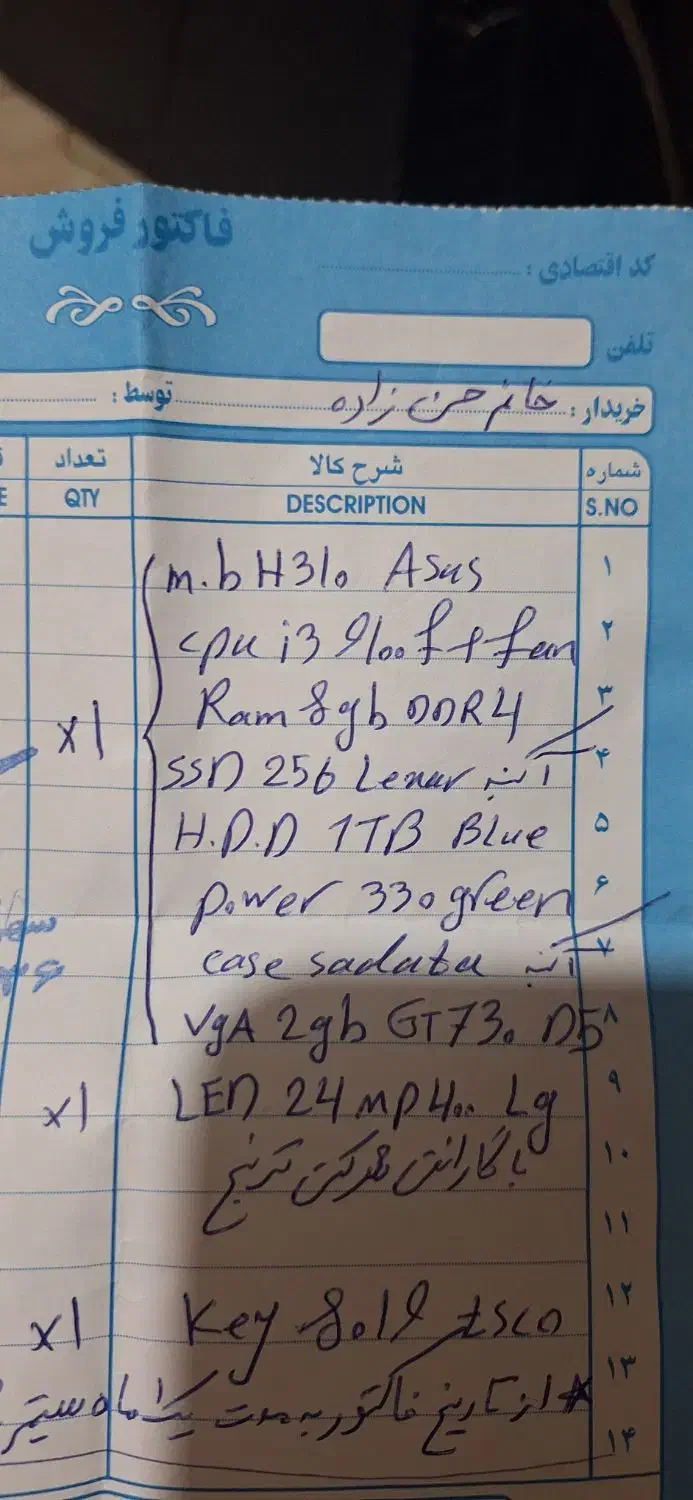 فاکتور فروش
کد اقتصادی :
تلفن
خریدار : خانم حسن زاده توسط :
شماره شرح کالا تعداد
S.NO DESCRIPTION QTY
۱ m.b H310 Asus
۲ cpu i3 9100f + fan
۳ Ram 8gb DDR4
x1
۴ SSD 256 Lexar آکبند
۵ H.D.D 1TB Blue
۶ power 330 green
۷ case sadata آکبند
۸ VgA 2gb GT730 D5
۹ LED 24 MP400 Lg x1
۱۰ با گارانتی شرکتی ترنج
۱۱
۱۲ Key 8019 tsco x1
۱۳ * از تاریخ فاکتور به مدت یک ماه
۱۴